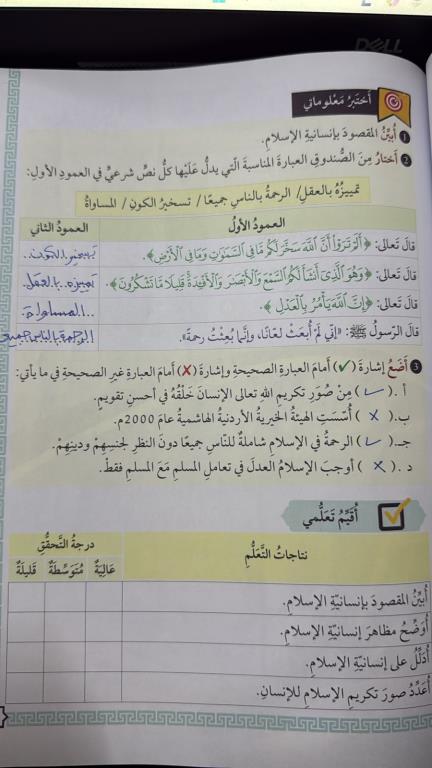 DELL
أَختَبِرُ مَعْلوماتي
1 أُبيِّنُ المقصودَ بإنسانيّةِ الإسلامِ.
2 أَختارُ مِنَ الصُّندوقِ العبارةَ المناسبةَ الّتي يدلُّ عَلَيْها كلُّ نصٍّ شرعيٍّ في العمودِ الأولِ:
تمييزُهُ بالعقلِ/ الرحمةُ بالناسِ جميعًا/ تسخيرُ الكونِ/ المساواةُ
العمودُ الأولُ العمودُ الثاني
قالَ تَعالى: ﴿أَلَمْ تَرَوْا أَنَّ اللَّهَ سَخَّرَ لَكُم مَّا فِي السَّمَٰوَٰتِ وَمَا فِي الْأَرْضِ﴾. تسخير الكون
قالَ تَعالى: ﴿وَهُوَ الَّذِي أَنشَأَ لَكُمُ السَّمْعَ وَالْأَبْصَٰرَ وَالْأَفْـِٔدَةَ قَلِيلًا مَّا تَشْكُرُونَ﴾. تمييزه بالعقل
قالَ تَعالى: ﴿إِنَّ اللَّهَ يَأْمُرُ بِالْعَدْلِ﴾ المساواة
قالَ الرّسولُ ﷺ: «إنّي لَمْ أُبعَثْ لعّانًا، وإنَّما بُعِثْتُ رحمةً». الرحمة بالناس جميع
3 أَضَعُ إشارةَ (✓) أمامَ العبارةِ الصحيحةِ وإشارةَ (✗) أمامَ العبارةِ غيرِ الصحيحةِ في ما يأتي:
أ . ( ✓ ) مِنْ صُوَرِ تكريمِ اللهِ تعالى الإنسانَ خَلْقُهُ في أحسنِ تقويمٍ.
ب. ( x ) أُسّسَتِ الهيئةُ الخيريةُ الأردنيةُ الهاشميةُ عامَ 2000م.
جـ. ( ✓ ) الرحمةُ في الإسلامِ شاملةٌ للنّاسِ جميعًا دونَ النظرِ لجنسِهِمْ ودينِهِمْ.
د . ( x ) أوجبَ الإسلامُ العدلَ في تعاملِ المسلمِ مَعَ المسلمِ فقطْ.
أُقيِّمُ تَعَلُّمي
نتاجاتُ التَّعَلُّمِ درجةُ التَّحقُّقِ
عَاليَةٌ مُتَوَسِّطَةٌ قَليلَةٌ
أُبيِّنُ المقصودَ بإنسانيّةِ الإسلامِ.
أُوَضِّحُ مظاهرَ إنسانيّةِ الإسلامِ.
أُدَلِّلُ على إنسانيّةِ الإسلامِ.
أُعَدِّدُ صورَ تكريمِ الإسلامِ للإنسانِ.